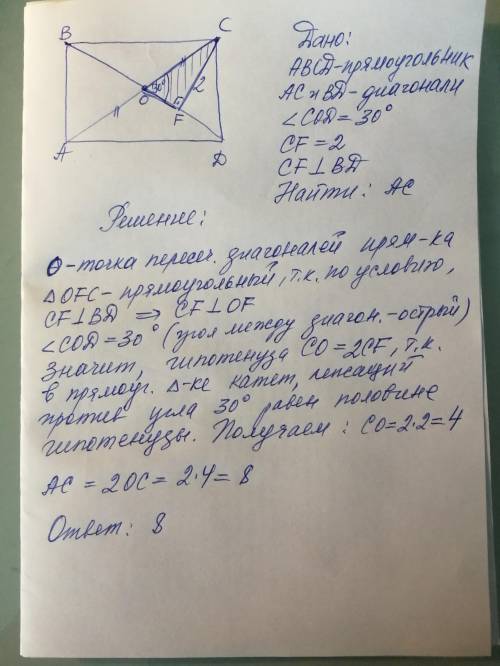 B
C
30°
2
O
F
A
D
Дано:
ABCD-прямоугольник
AC и BD-диагонали
∠COD=30°
CF=2
CF⊥BD
Найти: AC
Решение:
O-точка пересеч. диагоналей прям-ка
△OFC-прямоугольный, т.к. по условию,
CF⊥BD ⇒ CF⊥OF
∠COD=30° (угол между диагон.-острый)
Значит, гипотенуза CO=2CF, т.к.
в прямоуг. △-ке катет, лежащий
против угла 30° равен половине
гипотенузы. Получаем: CO=2·2=4
AC = 2OC = 2·4= 8
Ответ: 8